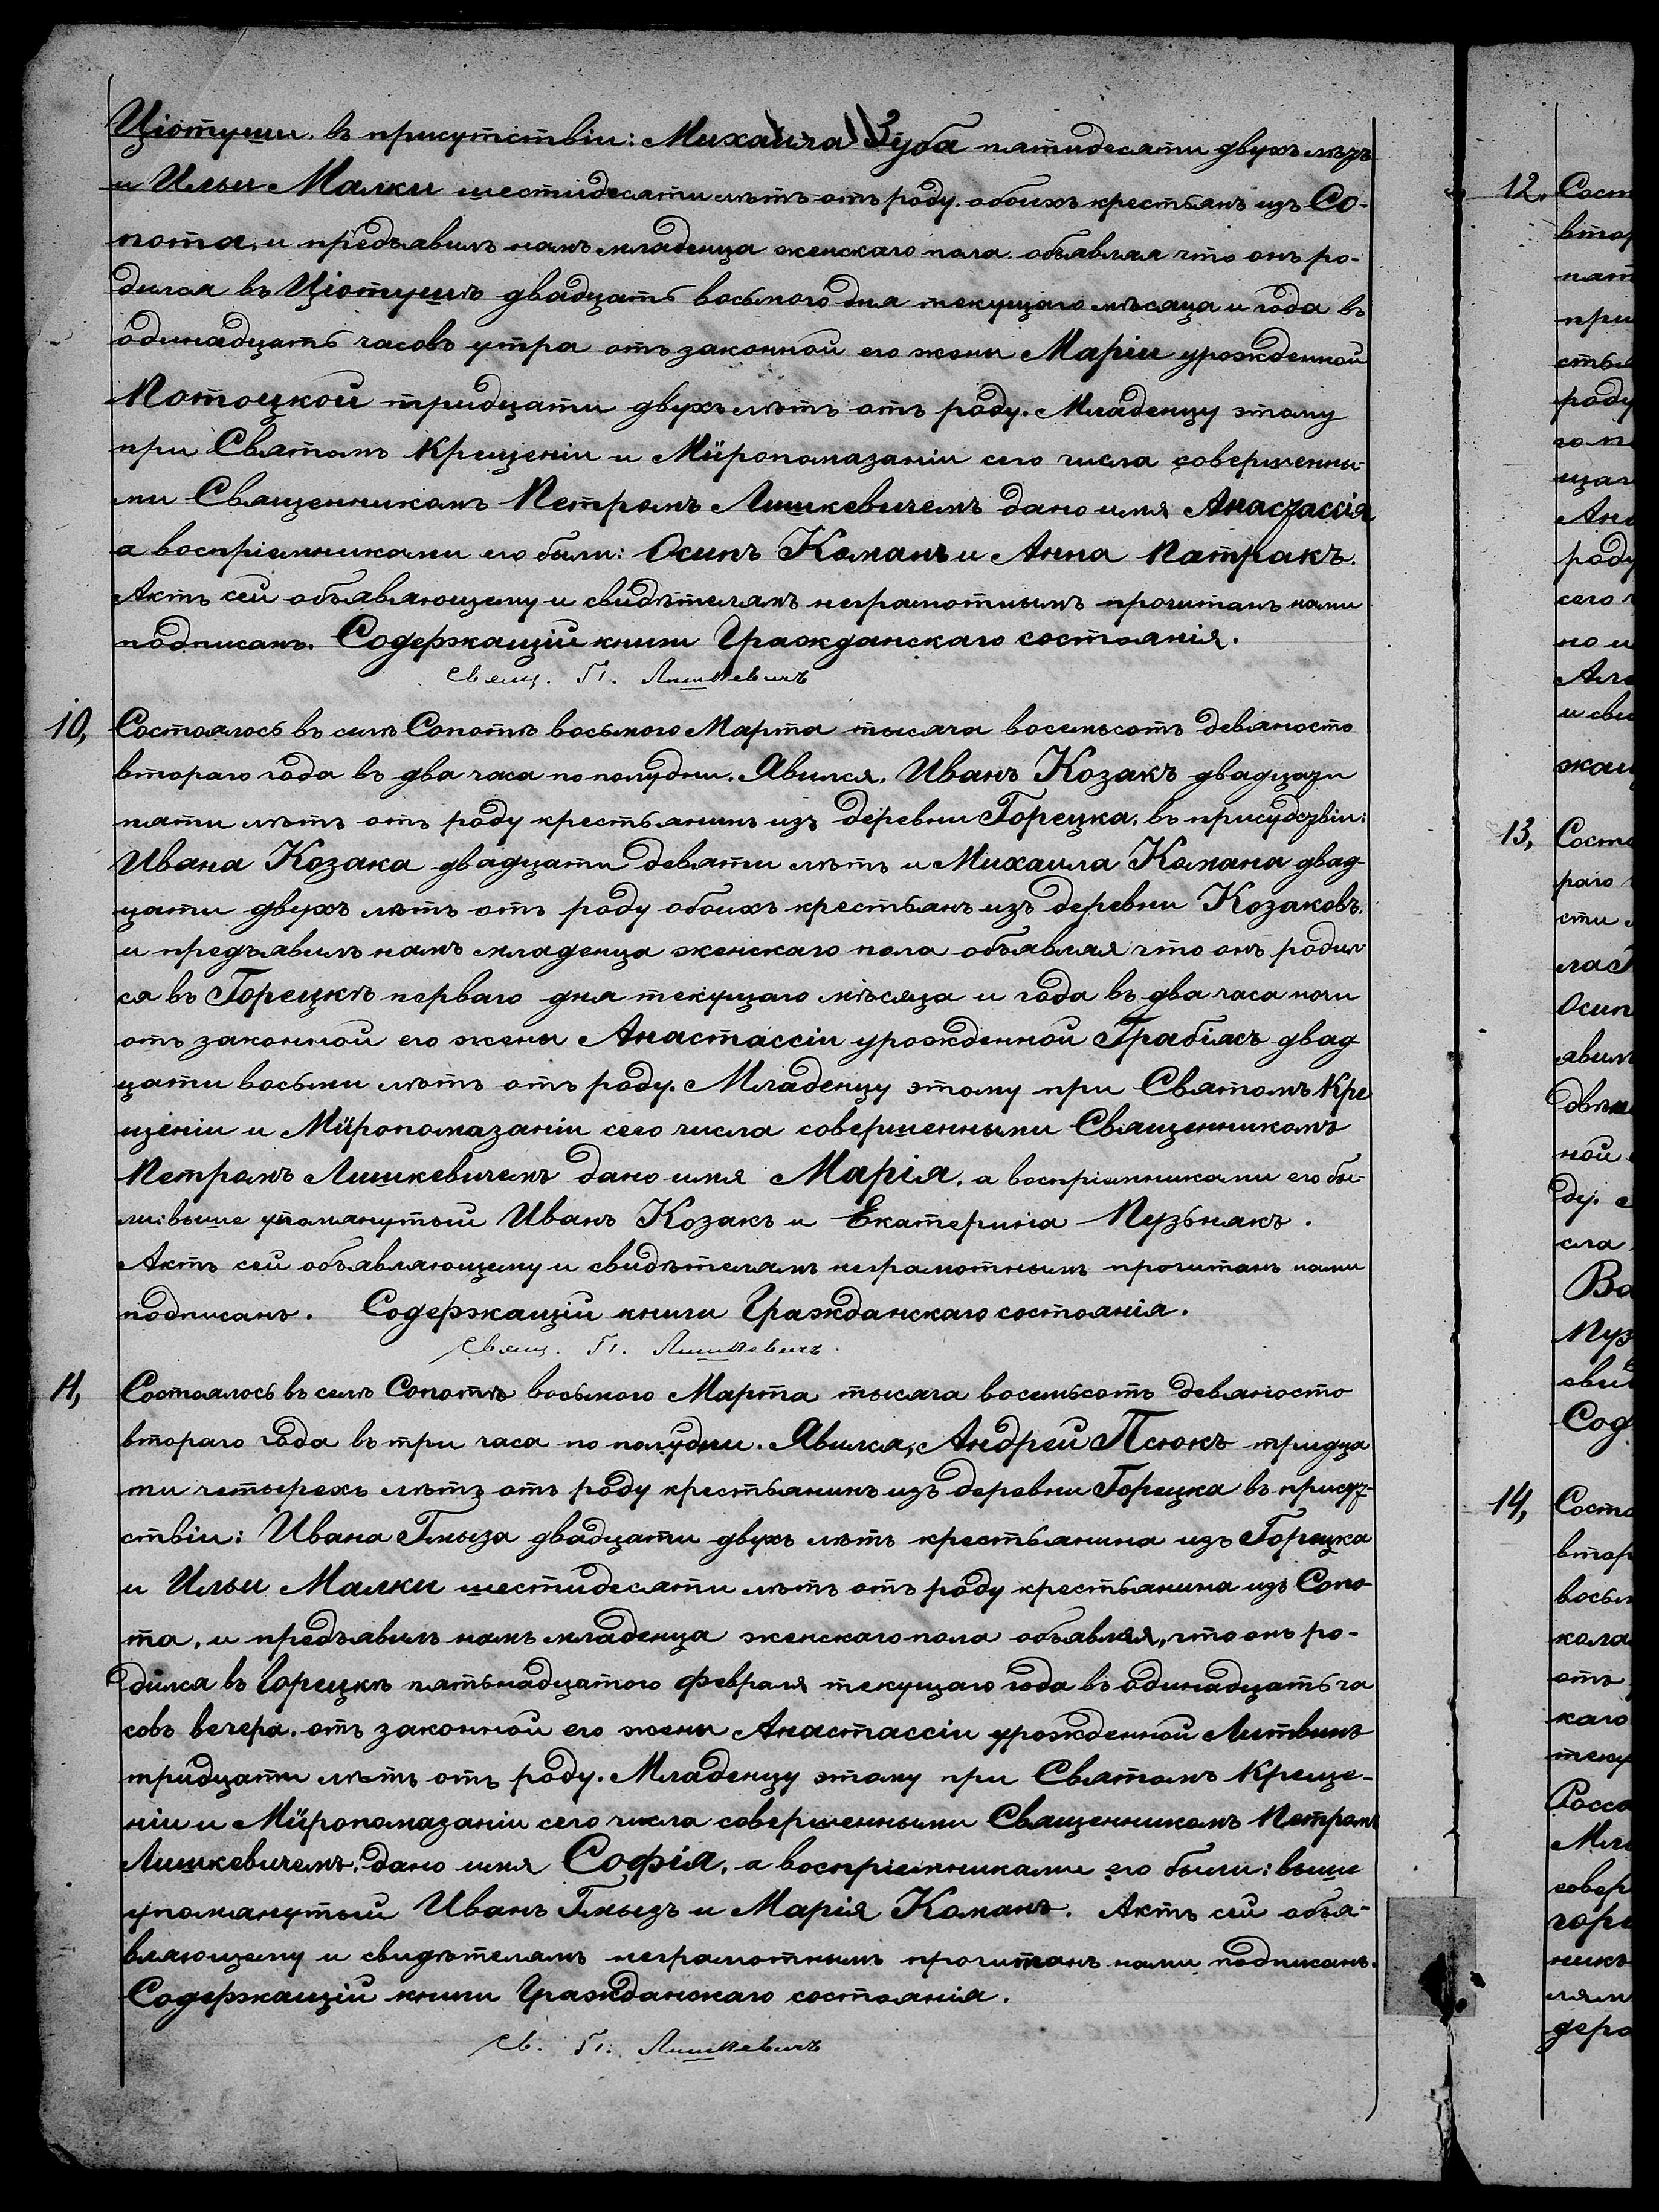 Ціотуши. въ присутствіи: Михаила Зуба пятидесяти двухъ лѣтъ
и Ильи Малки шестидесяти лѣтъ отъ роду. обоихъ крестьянъ изъ Со-
пота, и предъявилъ намъ младенца женскаго пола объявляя что онъ ро-
дился въ Ціотушѣ двадцать восьмого дня текущаго мѣсяца и года въ
одинадцать часовъ утра отъ законной его жены Маріи урожденной
Потоцкой тридцати двухъ лѣтъ отъ роду. Младенцу этому
при Святомъ Крещеніи и Мѵропомазаніи сего числа совершенны-
ми Священникомъ Петромъ Лишкевичемъ дано имя Анастассія
а воспріемниками его были: Осипъ Команъ и Анна Патракъ.
Актъ сей объявляющему и свидѣтелямъ неграмотнымъ прочитанъ нами
подписанъ. Содержащій книги Гражданскаго состоянія.
Свящ. П. Лишкевичъ
10, Состоялось въ селѣ Сопотѣ восьмого Марта тысяча восемьсотъ девяносто
втораго года въ два часа по полудни. Явился, Иванъ Козакъ двадцати
пяти лѣтъ отъ роду крестьянинъ изъ деревни Горецка, въ присудствіи:
Ивана Козака двадцати девяти лѣтъ и Михаила Комана двад-
цати двухъ лѣтъ отъ роду обоихъ крестьянъ изъ деревни Козаковъ,
и предъявилъ намъ младенца женскаго пола объявляя что онъ родил
ся въ Горецкѣ перваго дня текущаго мѣсяца и года въ два часа ночи
отъ законной его жены Анастассіи урожденной Грабіясъ двад
цати восьми лѣтъ отъ роду. Младенцу этому при Святомъ Кре
щеніи и Мѵропомазаніи сего числа совершенными Священникомъ
Петромъ Лишкевичемъ дано имя Марія, а воспріемниками его бы-
ли: выше упомянутый Иванъ Козакъ и Екатерина Пузьнякъ.
Актъ сей объявляющему и свидѣтелямъ неграмотнымъ прочитанъ нами
подписанъ. Содержащій книги Гражданскаго состоянія.
Свящ. П. Лишкевичъ
11, Состоялось въ селѣ Сопотѣ восьмого Марта тысяча восемьсотъ девяносто
втораго года въ три часа по полудни. Явился, Андрей Псюкъ тридца
ти четырехъ лѣтъ отъ роду крестьянинъ изъ деревни Горецка въ присут-
ствіи: Ивана Гмыза двадцати двухъ лѣтъ крестьянина изъ Горецка
и Ильи Малки шестидесяти лѣтъ отъ роду крестьянина изъ Сопо-
та, и предъявилъ намъ младенца женскаго пола объявляя, что онъ ро-
дился въ Горецкѣ пятьнадцатого февраля текущаго года въ одинадцать ча
совъ вечера, отъ законной его жены Анастассіи урожденной Литвинъ
тридцати лѣтъ отъ роду. Младенцу этому при Святомъ Креще-
ніи и Мѵропомазаніи сего числа совершенными Священникомъ Петромъ
Лишкевичемъ, дано имя Софія, а воспріемниками его были: выше
упомянутый Иванъ Гмызъ и Марія Команъ. Актъ сей объя-
вляющему и свидѣтелямъ неграмотнымъ прочитанъ нами подписанъ.
Содержащій книги Гражданскаго состоянія.
Св. П. Лишкевичъ
12, Сост
втор
пят
при
стья
роду
го п
щаг
Ана
роду
сего ч
но и
Але
и сви
жащ
13, Состо
раго
сти
ла Г
Осип
явил
двѣн
ной
ду. 
сла
Ва
Пуз
свид
Сод
14, Состо
втор
восьм
кола
отъ
каго
теку
Росса
Мла
совер
горе
никъ
лям
держ